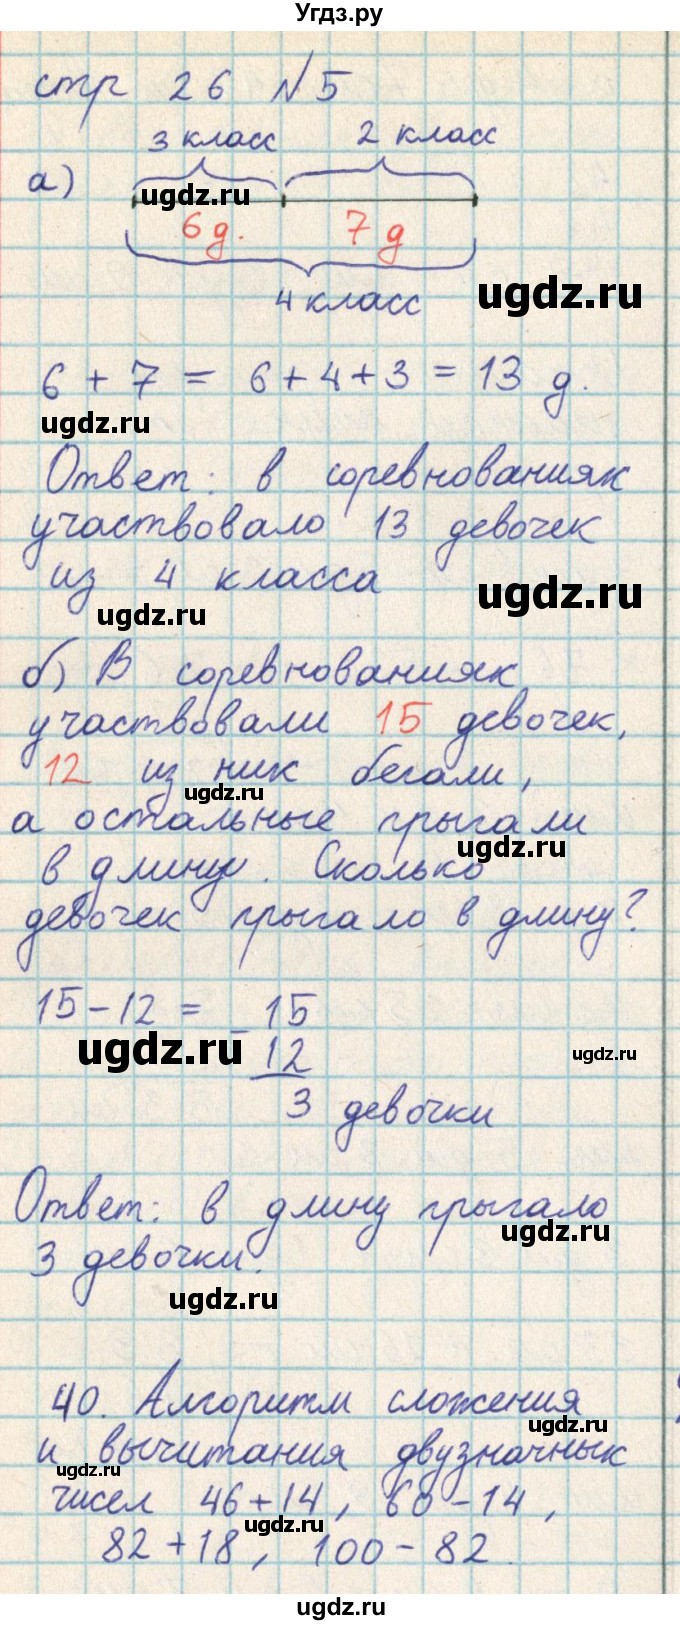 Угдз.ру
стр 26 №5
3 класс 2 класс
а)
ugdz.ru
6 д. 7 д
4 класс
ugdz.ru
6 + 7 = 6 + 4 + 3 = 13 д.
ugdz.ru
Ответ: в соревнованиях
участвовало 13 девочек
из 4 класса
ugdz.ru
ugdz.ru
б) В соревнованиях
участвовали 15 девочек,
12 из них бегали,
ugdz.ru
а остальные прыгали
ugdz.ru
в длину. Сколько
девочек прыгало в длину?
15 - 12 = 15
ugdz.ru
- 12
ugdz.ru
3 девочки
Ответ: в длину прыгало
ugdz.ru
3 девочки.
ugdz.ru
40. Алгоритм сложения
ugdz.ru
и вычитания двузначных
ugdz.ru
чисел 46+14, 60-14,
ugdz.ru
82+18, 100-82.
ugdz.ru